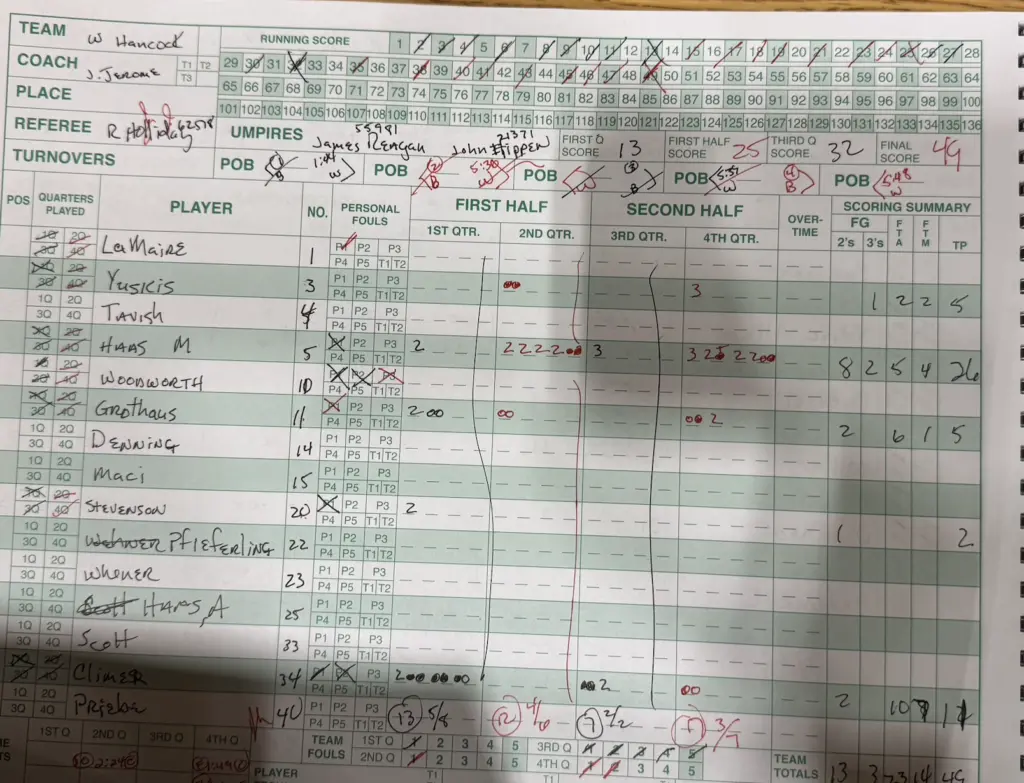 TEAM W Hancock RUNNING SCORE 1 2 3 4 5 6 7 8 9 10 11 12 13 14 15 16 17 18 19 20 21 22 23 24 25 26 27 28
COACH J. JEROME T1 T2 T3 29 30 31 32 33 34 35 36 37 38 39 40 41 42 43 44 45 46 47 48 49 50 51 52 53 54 55 56 57 58 59 60 61 62 63 64
PLACE 65 66 67 68 69 70 71 72 73 74 75 76 77 78 79 80 81 82 83 84 85 86 87 88 89 90 91 92 93 94 95 96 97 98 99 100
101 102 103 104 105 106 107 108 109 110 111 112 113 114 115 116 117 118 119 120 121 122 123 124 125 126 127 128 129 130 131 132 133 134 135 136
REFEREE R Holliday 62578 UMPIRES James Reagan 55981 John 21371 FIRST Q SCORE 13 FIRST HALF SCORE 25 THIRD Q SCORE 32 FINAL SCORE 49
TURNOVERS POB B W POB 2 B 5:38 W POB W 3 B POB 5:37 W 4 B POB 5:48 W
POS QUARTERS PLAYED PLAYER NO. PERSONAL FOULS FIRST HALF 1ST QTR. 2ND QTR. SECOND HALF 3RD QTR. 4TH QTR. OVER-TIME SCORING SUMMARY FG 2's 3's FTA FTM TP
1Q 2Q 3Q 4Q LaMaire 1 P1 P2 P3 P4 P5 T1 T2
1Q 2Q 3Q 4Q Yuskis 3 P1 P2 P3 P4 P5 T1 T2 3 1 2 2 5
1Q 2Q 3Q 4Q Tavish 4 P1 P2 P3 P4 P5 T1 T2
1Q 2Q 3Q 4Q HAAS M 5 P1 P2 P3 P4 P5 T1 T2 2 2 2 2 2 3 3 2 2 2 2 8 2 5 4 26
1Q 2Q 3Q 4Q WOODWORTH 10 P1 P2 P3 P4 P5 T1 T2
1Q 2Q 3Q 4Q Grothaus 11 P1 P2 P3 P4 P5 T1 T2 2 2 2 6 1 5
1Q 2Q 3Q 4Q DENNING 14 P1 P2 P3 P4 P5 T1 T2
1Q 2Q 3Q 4Q Maci 15 P1 P2 P3 P4 P5 T1 T2
1Q 2Q 3Q 4Q STEVENSON 20 P1 P2 P3 P4 P5 T1 T2 2 1 2
1Q 2Q 3Q 4Q PFIEFERLING 22 P1 P2 P3 P4 P5 T1 T2
1Q 2Q 3Q 4Q WHONER 23 P1 P2 P3 P4 P5 T1 T2
1Q 2Q 3Q 4Q Scott HAAS, A 25 P1 P2 P3 P4 P5 T1 T2
1Q 2Q 3Q 4Q Scott 33 P1 P2 P3 P4 P5 T1 T2
1Q 2Q 3Q 4Q Climer 34 P1 P2 P3 P4 P5 T1 T2 2 2 2 10 7 11
1Q 2Q 3Q 4Q Priebe 40 P1 P2 P3 P4 P5 T1 T2 13 5/8 12 4/6 7 2/2 17 3/7
1ST Q 2ND Q 3RD Q 4TH Q TEAM FOULS 1ST Q 1 2 3 4 5 3RD Q 1 2 3 4 5
2ND Q 1 2 3 4 5 4TH Q 1 2 3 4 5 TEAM TOTALS 13 3 14 49
PLAYER T1 T1